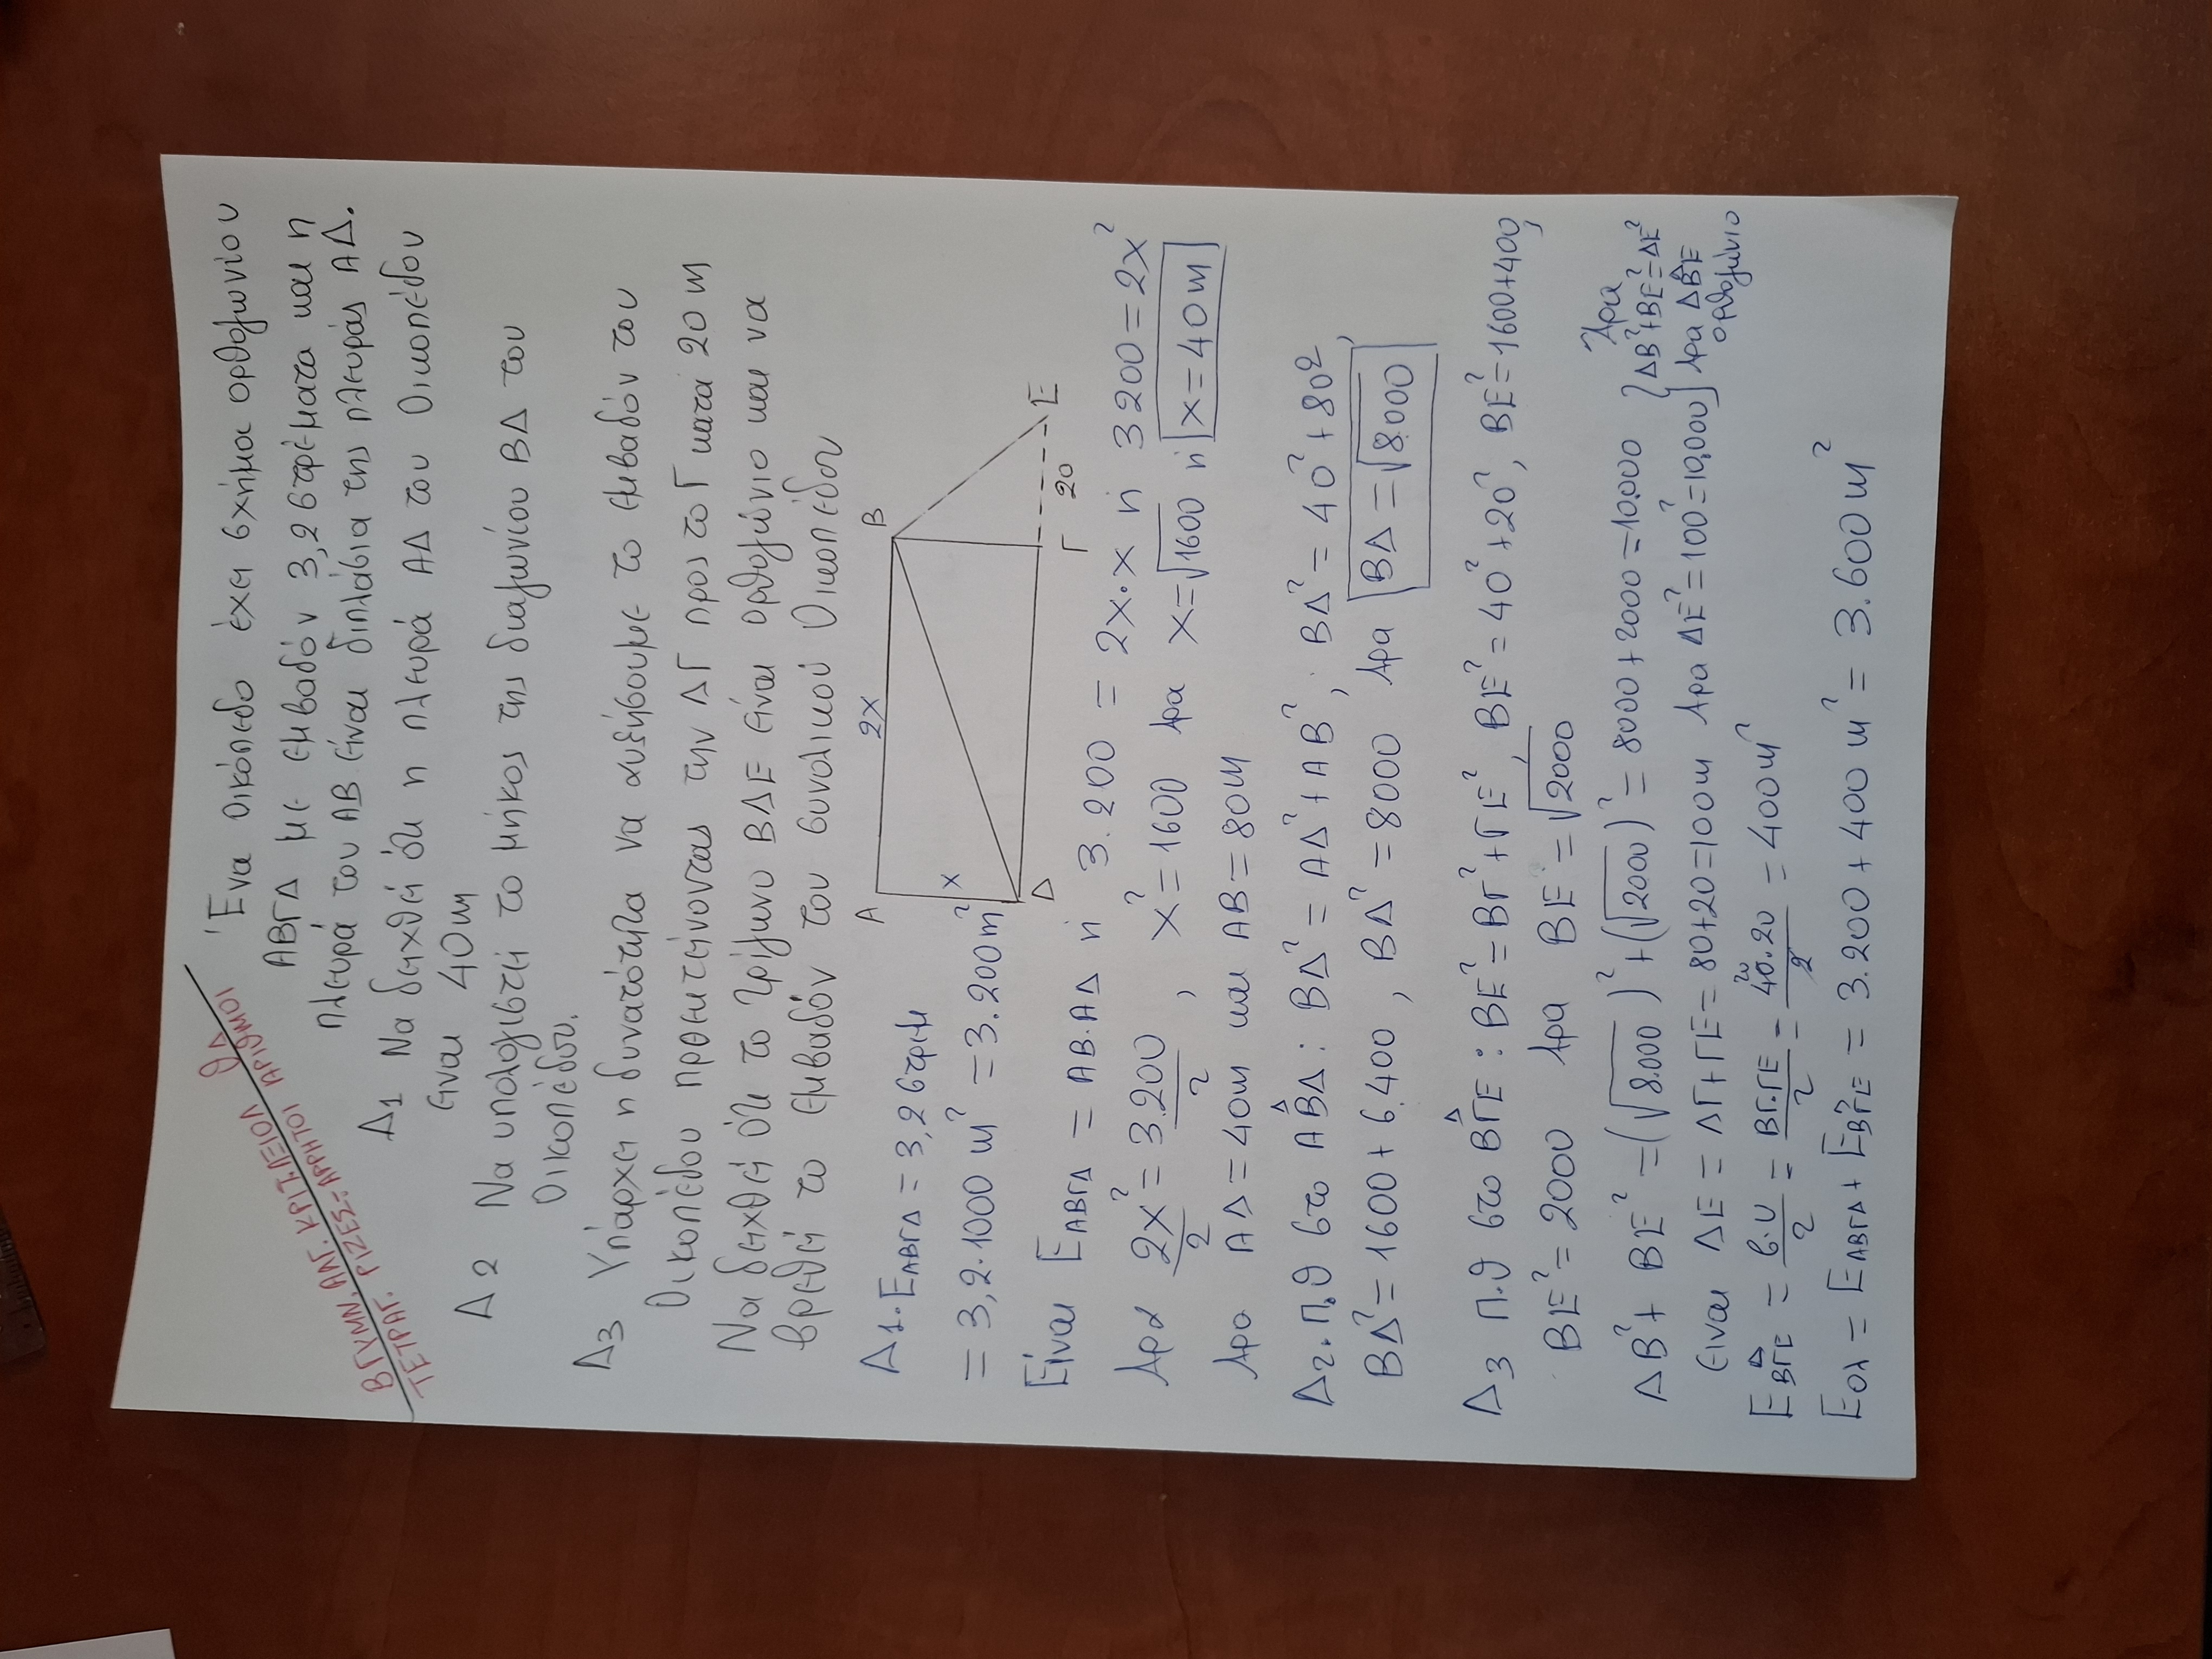 ΒΓΥΜΝ. ΑΛΓ. ΚΡΙΤ. ΑΞΙΟΛ ΘΔ
ΤΕΤΡΑΓ. ΡΙΖΕΣ-ΑΡΡΗΤΟΙ ΑΡΙΘΜΟΙ
Ένα οικόπεδο έχει σχήμα ορθογωνίου
ΑΒΓΔ με εμβαδόν 3,2 στρέμματα και η
πλευρά του ΑΒ είναι διπλάσια της πλευράς ΑΔ.
Δ1 Να δειχθεί ότι η πλευρά ΑΔ του οικοπέδου
είναι 40m
Δ2 Να υπολογιστεί το μήκος της διαγωνίου ΒΔ του
οικοπέδου.
Δ3 Υπάρχει η δυνατότητα να αυξήσουμε το εμβαδόν του
οικοπέδου προεκτείνοντας την ΔΓ προς το Γ κατά 20m
Να δειχθεί ότι το τρίγωνο ΒΔΕ είναι ορθογώνιο και να
βρεθεί το εμβαδόν του συνολικού οικοπέδου
Α 2x Β
x
Δ Γ 20 Ε
Δ1. ΕΑΒΓΔ = 3,2 στρεμ
= 3,2·1000 m² = 3.200m²
Είναι ΕΑΒΓΔ = ΑΒ·ΑΔ ή 3.200 = 2x·x ή 3200=2x²
Άρα 2x²/2 = 3.200/2 , x²=1600 άρα x=√1600 ή x=40m
Άρα ΑΔ=40m και ΑΒ=80m
Δ2. Π.Θ στο ΑΒΔ : ΒΔ²=ΑΔ²+ΑΒ², ΒΔ²=40²+80²,
ΒΔ²=1600+6.400 , ΒΔ²=8000 άρα ΒΔ=√8.000
Δ3 Π.Θ στο ΒΓΕ : ΒΕ²=ΒΓ²+ΓΕ², ΒΕ²=40²+20², ΒΕ²=1600+400,
ΒΕ²=2000 άρα ΒΕ=√2000
ΔΒ²+ΒΕ²=(√8.000)²+(√2000)²=8000+2000=10.000
είναι ΔΕ=ΔΓ+ΓΕ=80+20=100m άρα ΔΕ²=100²=10.000
Άρα
ΔΒ²+ΒΕ²=ΔΕ²
Άρα ΔΒΕ
ορθογώνιο
ΕΒΓΕ = β·υ/2 = ΒΓ·ΓΕ/2 = 40·20/2 = 400m²
Εολ = ΕΑΒΓΔ + ΕΒΓΕ = 3.200+400m² = 3.600m²